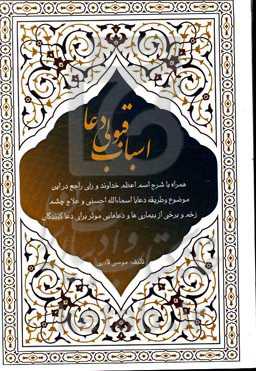 اسباب قبولی دعا
همراه با شرح اسم اعظم خداوند و رای راجع در این
موضوع وطریقه دعابا اسماءالله الحسنی و علاج چشم
زخم و برخی از بیماری ها و دعاهایی موثر برای دعا کنندگان
تألیف: موسی قادری